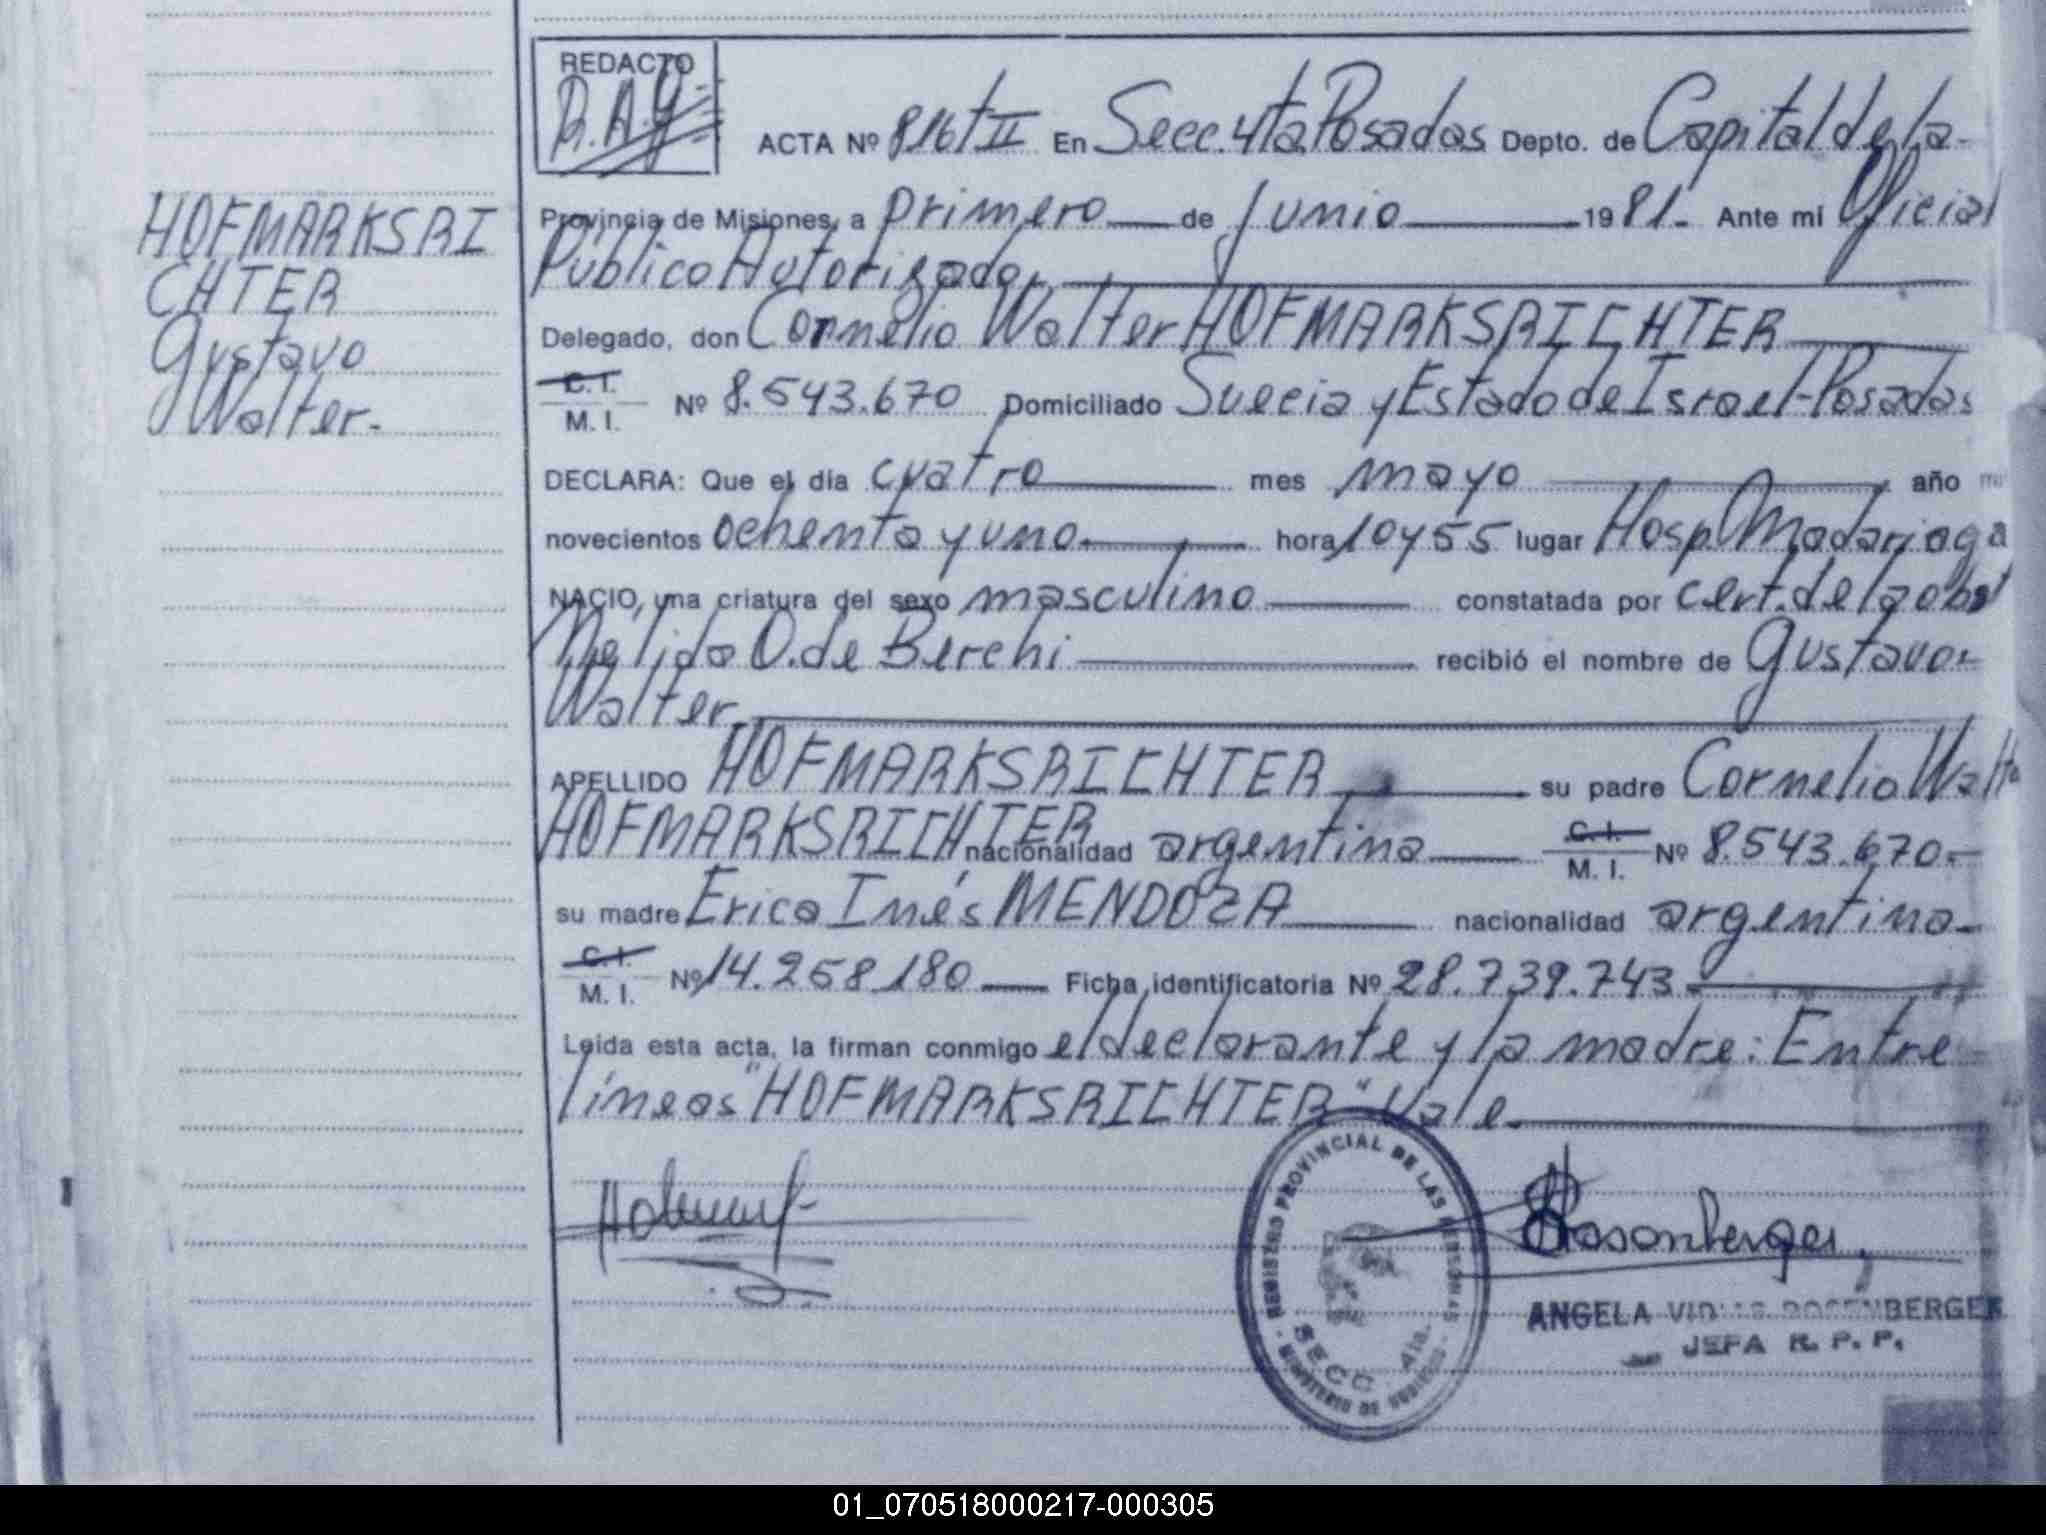 REDACTO
R.A.G.
ACTA Nº 816 t II En Secc. 4ta. Posadas Depto. de Capital de la
Provincia de Misiones, a primero de junio 1981.- Ante mí Oficial
Público Autorizado,
HOFMARKSRI
CHTER
Gustavo
Walter.-
Delegado, don Cornelio Walter HOFMARKSRICHTER
C. I.
M. I. Nº 8.543.670 Domiciliado Suecia y Estado de Israel-Posadas
DECLARA: Que el día cuatro mes mayo año
novecientos ochenta y uno hora 10 y 55 lugar Hosp. Madariaga
NACIO, una criatura del sexo masculino constatada por cert. de la obst
Nelida O. de Berchi recibió el nombre de Gustavo
Walter
APELLIDO HOFMARKSRICHTER su padre Cornelio Walter
HOFMARKSRICHTER nacionalidad argentina C. I.
M. I. Nº 8.543.670.-
su madre Erica Inés MENDOZA nacionalidad argentina
C. I.
M. I. Nº 14.258.180 Ficha identificatoria Nº 28.739.743
Leida esta acta, la firman conmigo el declarante y la madre: Entre
líneas "HOFMARKSRICHTER" Vale
REGISTRO PROVINCIAL DE LAS PERSONAS
SECC. 4ta.
MINISTERIO DE GOBIERNO
Rosenberger
ANGELA ROSENBERGER
JEFA R. P. P.
01_070518000217-000305